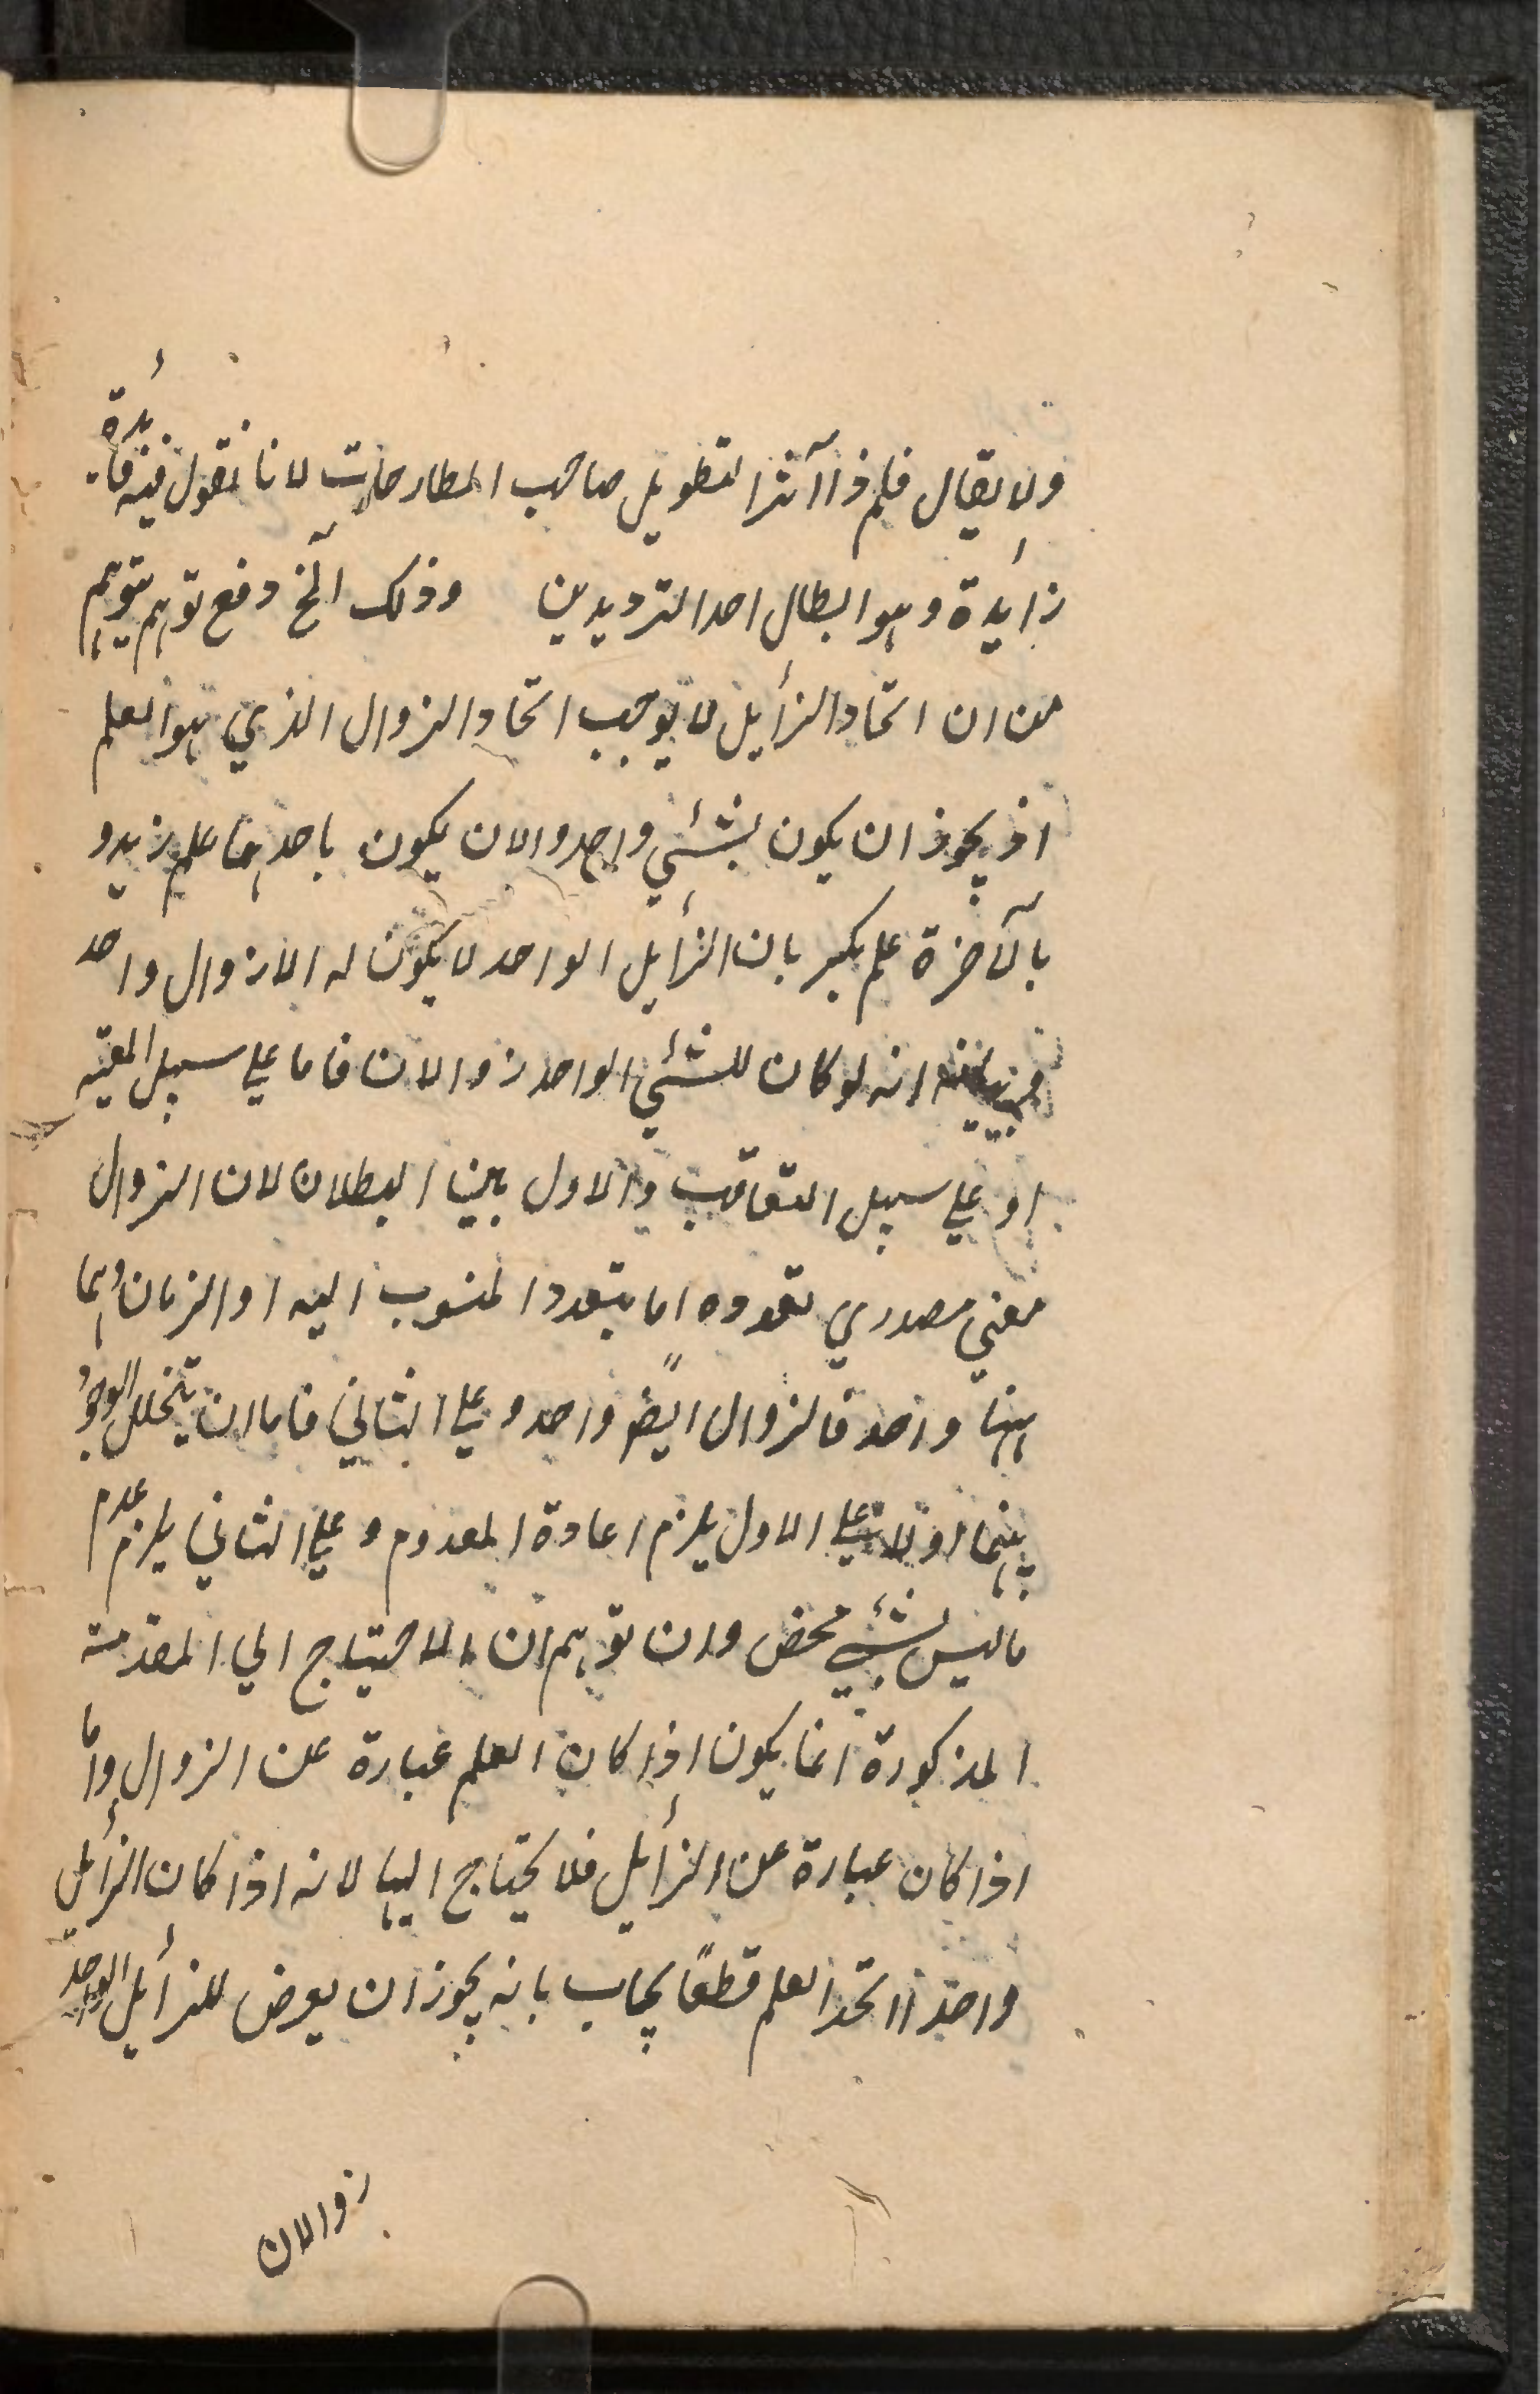 ولا يقال فلم ذا آثرا لتطويل صاحب المطارحات لانا نقول فيه فائدة
زائدة وهو ابطال احد الترديدين وذلك آلخ دفع توهم يتوهم
من ان اتحاد الزائل لا يوجب اتحاد الزوال الذي هو العلم
اذ يجوز ان يكون لشئي واحد والان يكون باحدهما علم زيد و
بالآخرة علم بكر بان الزائل الواحد لا يكون له الا زوال واحد
انه لو كان للشئي الواحد زوالان فاما علي سبيل المعيّه
او علي سبيل التعاقب والاول بين البطلان لان الزوال
معني مصدري تعدده اما بتعدد المنسوب اليه او الزمان وهما
ههنا واحد فالزوال ايضً واحد وعلي الثاني فاما ان يتخلل الوجود
بينهما او لا علي الاول يلزم اعادة المعدوم وعلي الثاني يلزم عدم
ما ليس بشئي محض وان توهم ان الاحتياج الي المقدمة
المذكورة انما يكون اذا كان العلم عبارة عن الزوال وامّا
اذا كان عبارة عن الزائل فلا يحتاج اليها لانه اذا كان الزائل
واحدًا اتحد العلم قطعًا يجاب بانه يجوز ان يعرض للزائل الواحد
زوالان